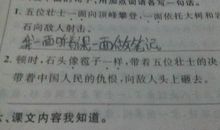 1. 五位壮士一面向顶峰攀登,一面依托大树和岩
石向敌人射击。
我一面听课一面做笔记
2. 顿时,石头像雹子一样,带着五位壮士的决
带着中国人民的仇恨,向敌人头上砸去。
、课文内容我知道。